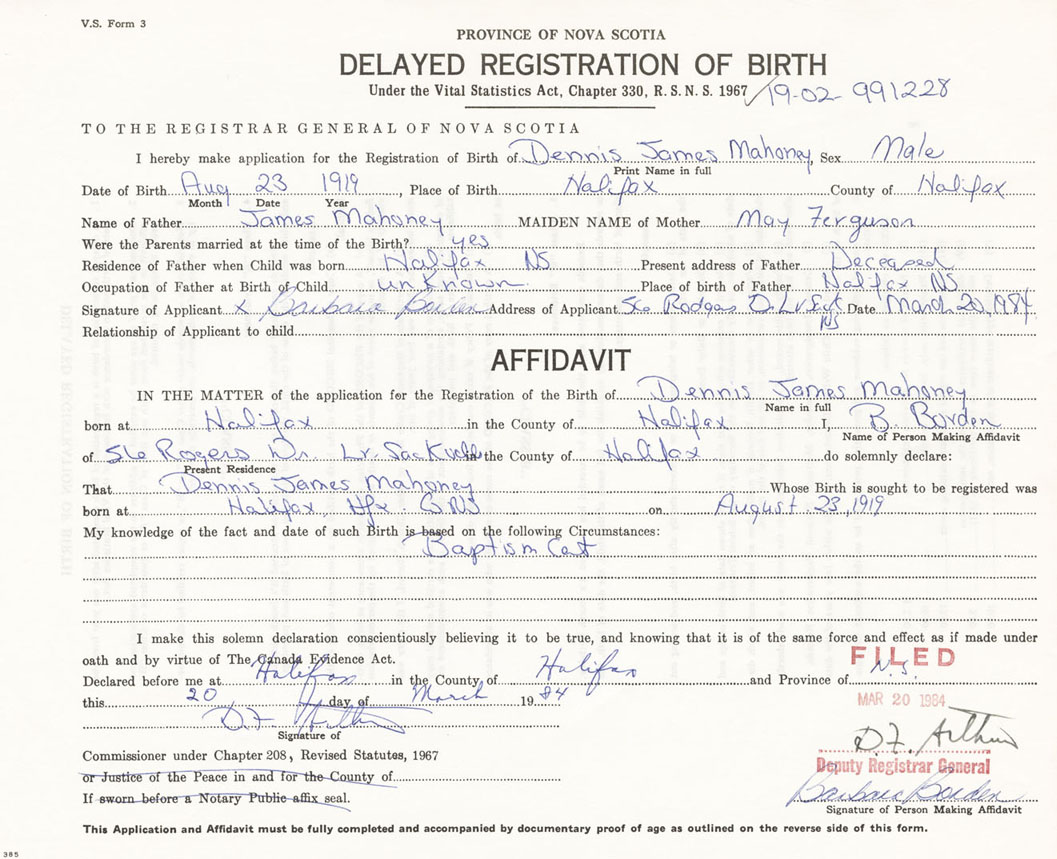 V.S. Form 3
PROVINCE OF NOVA SCOTIA
DELAYED REGISTRATION OF BIRTH
Under the Vital Statistics Act, Chapter 330, R.S.N.S. 1967 19-02-991228
TO THE REGISTRAR GENERAL OF NOVA SCOTIA
I hereby make application for the Registration of Birth of Dennis James Mahoney, Sex Male
Print Name in full
Date of Birth Aug 23 1919, Place of Birth Halifax County of Halifax
Month Date Year
Name of Father James Mahoney MAIDEN NAME of Mother May Ferguson
Were the Parents married at the time of the Birth? yes
Residence of Father when Child was born Halifax NS Present address of Father Deceased
Occupation of Father at Birth of Child unknown Place of birth of Father Halifax NS
Signature of Applicant x Barbara Borden Address of Applicant Date March 20, 1984
NS
Relationship of Applicant to child
AFFIDAVIT
IN THE MATTER of the application for the Registration of the Birth of Dennis James Mahoney
Name in full
born at Halifax in the County of Halifax I, B. Borden
Name of Person Making Affidavit
of Rogers Dr. Lr. Sackville in the County of Halifax do solemnly declare:
Present Residence
That Dennis James Mahoney Whose Birth is sought to be registered was
born at Halifax, Hfx. Co NS on August 23, 1919
My knowledge of the fact and date of such Birth is based on the following Circumstances:
Baptism Cert
I make this solemn declaration conscientiously believing it to be true, and knowing that it is of the same force and effect as if made under
oath and by virtue of The Canada Evidence Act.
FILED
Declared before me at Halifax in the County of Halifax and Province of N.S.
this 20 day of March 1984
MAR 20 1984
D.F. Arthur
Signature of
D.F. Arthur
Commissioner under Chapter 208, Revised Statutes, 1967
Deputy Registrar General
or Justice of the Peace in and for the County of
Barbara Borden
If sworn before a Notary Public affix seal.
Signature of Person Making Affidavit
This Application and Affidavit must be fully completed and accompanied by documentary proof of age as outlined on the reverse side of this form.
385